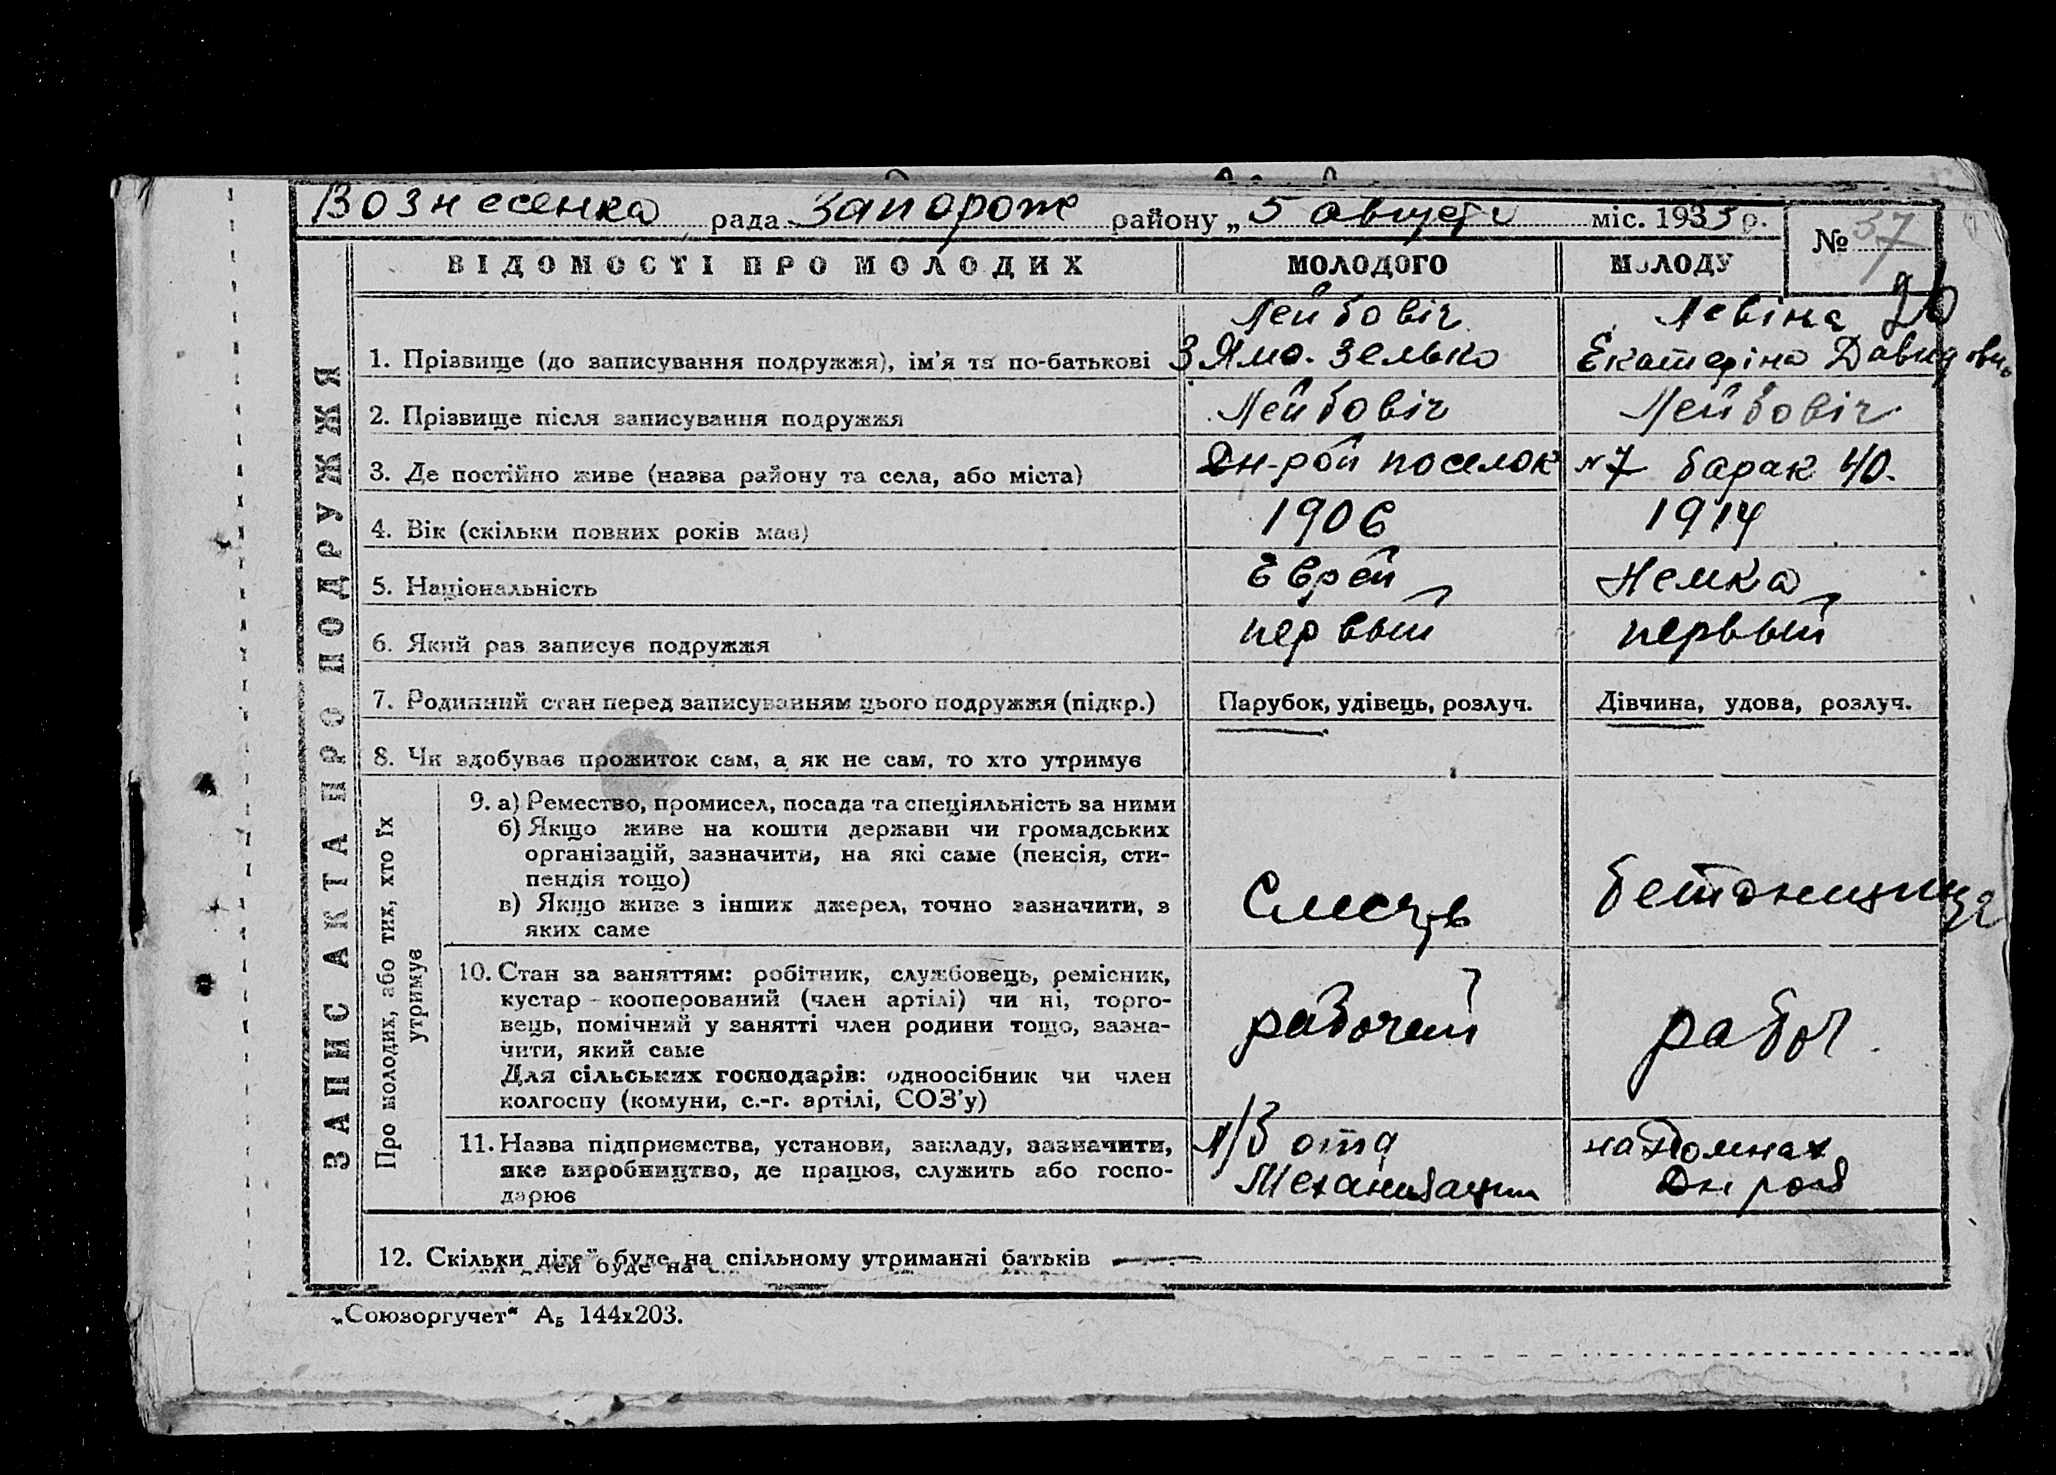 Вознесенка рада Запорож району „ 5 августа міс. 1933 р.
№ 37
ЗАПИС АКТА ПРО ПОДРУЖЖЯ
ВІДОМОСТІ ПРО МОЛОДИХ МОЛОДОГО МОЛОДУ
Лейбовіч Левіна
1. Прізвище (до записування подружжя), ім'я та по-батькові Зелько Екатеріна Давидовна
2. Прізвище після записування подружжя Лейбовіч Лейбовіч
3. Де постійно живе (назва району та села, або міста) Дн-рой поселок №7 барак 40.
4. Вік (скільки повних років має) 1906 1914
5. Національність Еврей Немка
6. Який раз записує подружжя первый первый
7. Родинний стан перед записуванням цього подружжя (підкр.) Парубок, удівець, розлуч. Дівчина, удова, розлуч.
8. Чи здобуває прожиток сам, а як не сам, то хто утримує
Про молодих, або тих, хто їх
утримує
9. а) Ремество, промисел, посада та спеціяльність за ними
б) Якщо живе на кошти держави чи громадських
організацій, зазначити, на які саме (пенсія, сти-
пендія тощо)
в) Якщо живе з інших джерел, точно зазначити, з
яких саме
Слесарь бетонщица
10. Стан за заняттям: робітник, службовець, ремісник,
кустар - кооперований (член артілі) чи ні, торго-
вець, помічний у занятті член родини тощо, зазна-
чити, який саме
Для сільських господарів: одноосібник чи член
колгоспу (комуни, с.-г. артілі, СОЗ'у)
рабочий рабоч.
11. Назва підприємства, установи, закладу, зазначити,
яке виробництво, де працює, служить або госпо-
дарює
отд на Домнах
Механизации Дн рой
12. Скільки дітей буде на спільному утриманні батьків —
„Союзоргучет“ А5 144х203.